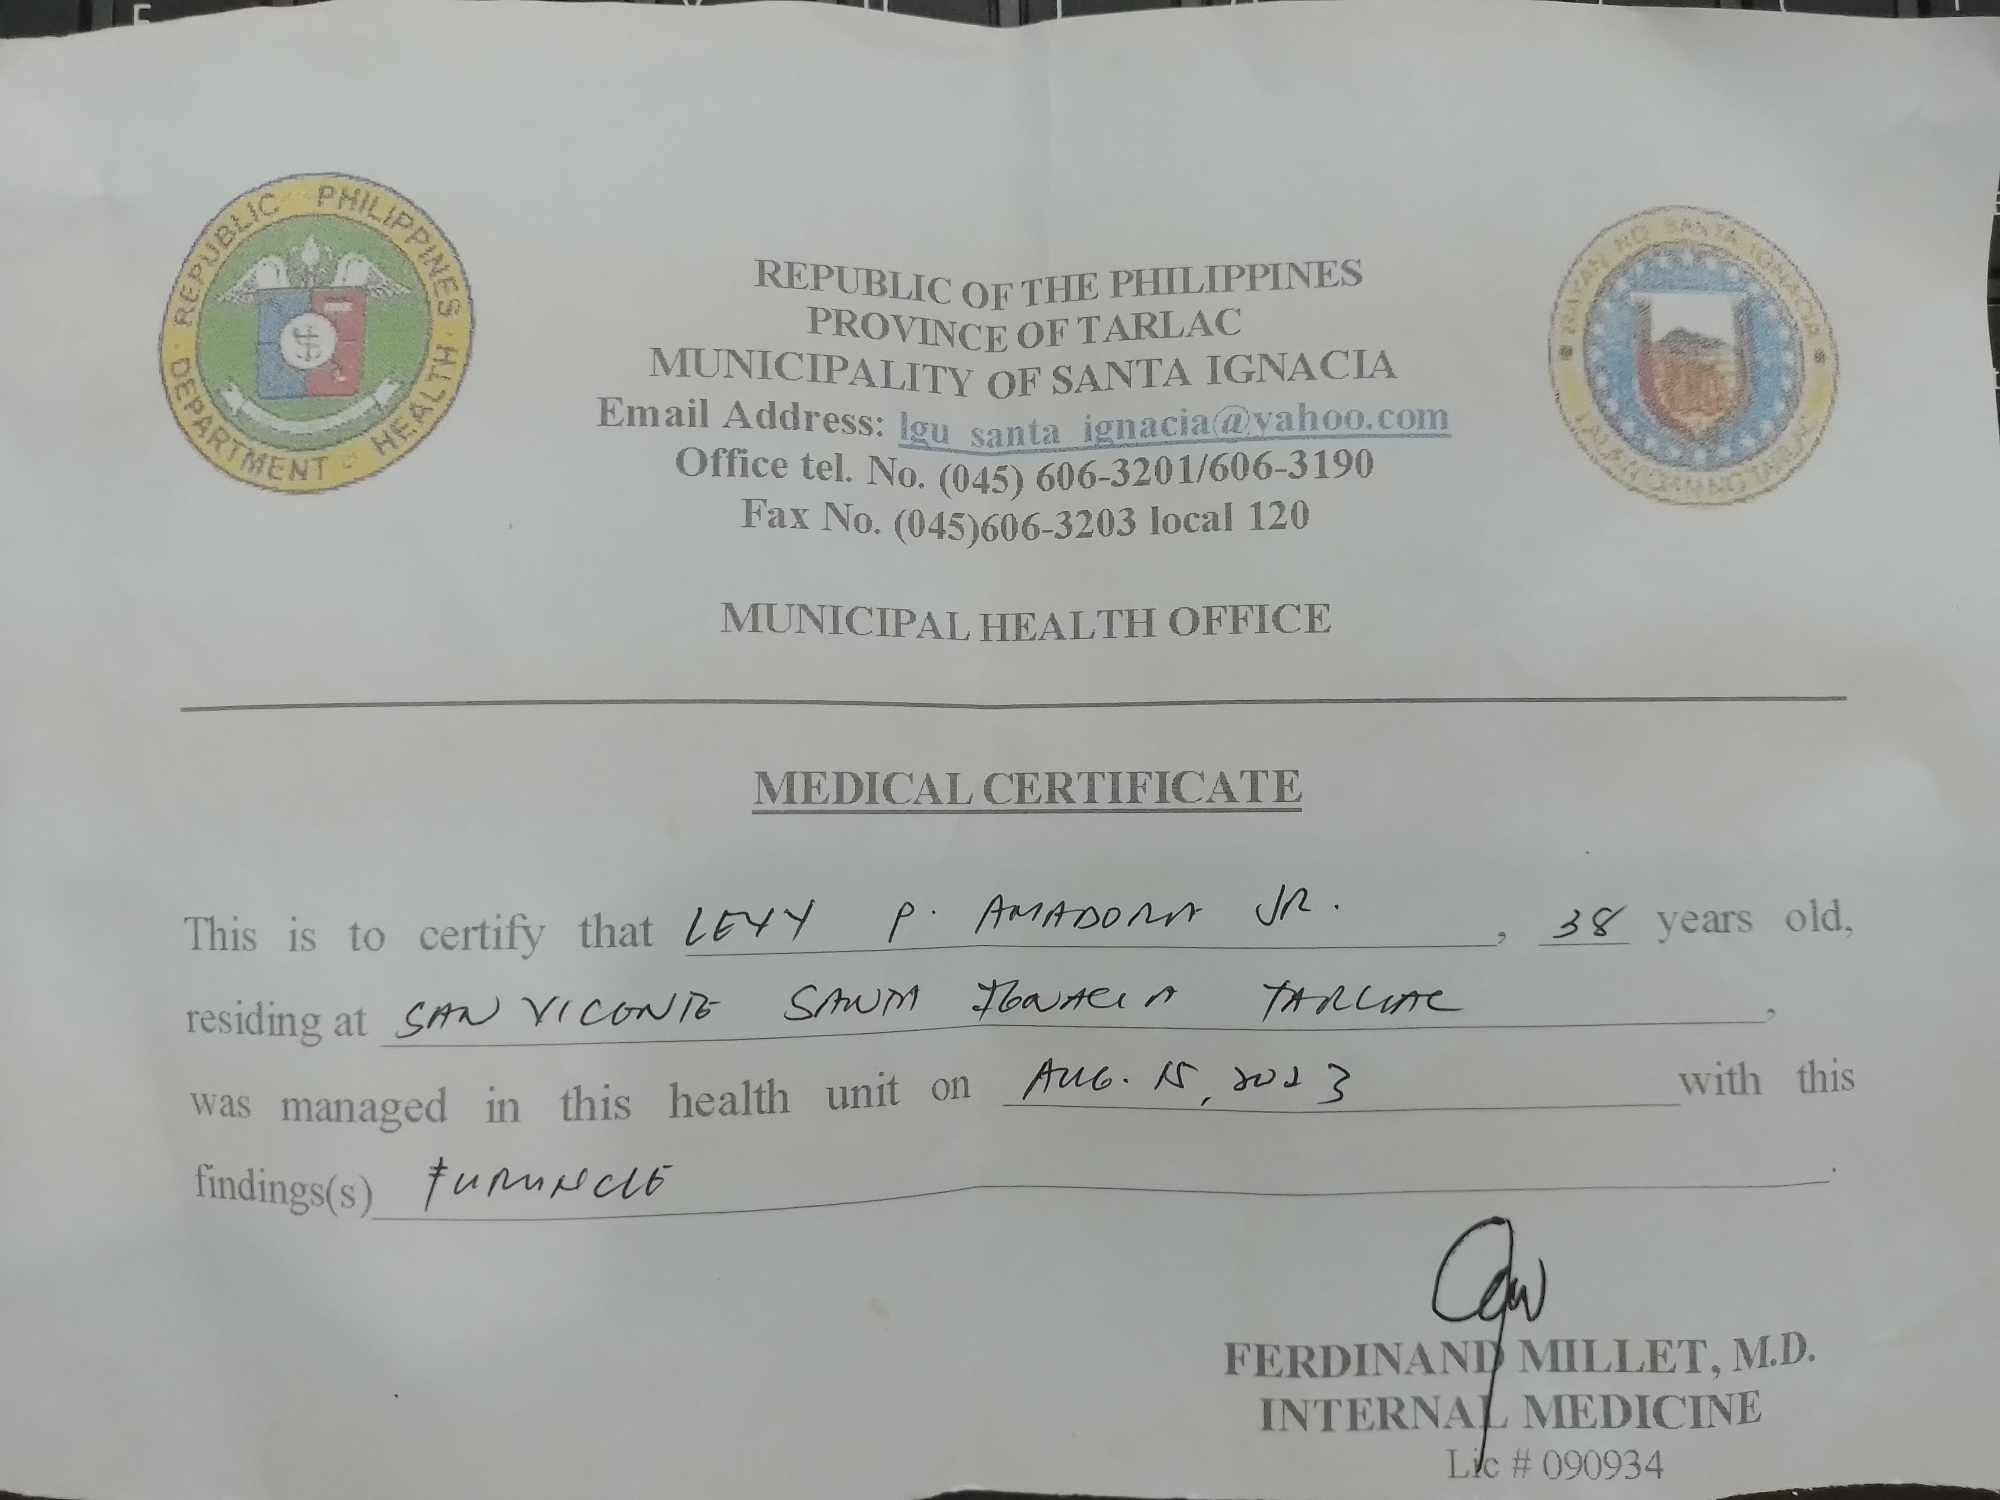 REPUBLIC PHILIPPINES
DEPARTMENT HEALTH
BAYAN NG SANTA IGNACIA
REPUBLIC OF THE PHILIPPINES
PROVINCE OF TARLAC
MUNICIPALITY OF SANTA IGNACIA
Email Address: lgu_santa_ignacia@yahoo.com
Office tel. No. (045) 606-3201/606-3190
Fax No. (045)606-3203 local 120
MUNICIPAL HEALTH OFFICE
MEDICAL CERTIFICATE
This is to certify that LEVY P. AMADORA JR. , 38 years old,
residing at SAN VICENTE SANTA IGNACIA TARLAC ,
was managed in this health unit on AUG. 15, 2023 with this
findings(s) FURUNCLE .
FERDINAND MILLET, M.D.
INTERNAL MEDICINE
Lic # 090934